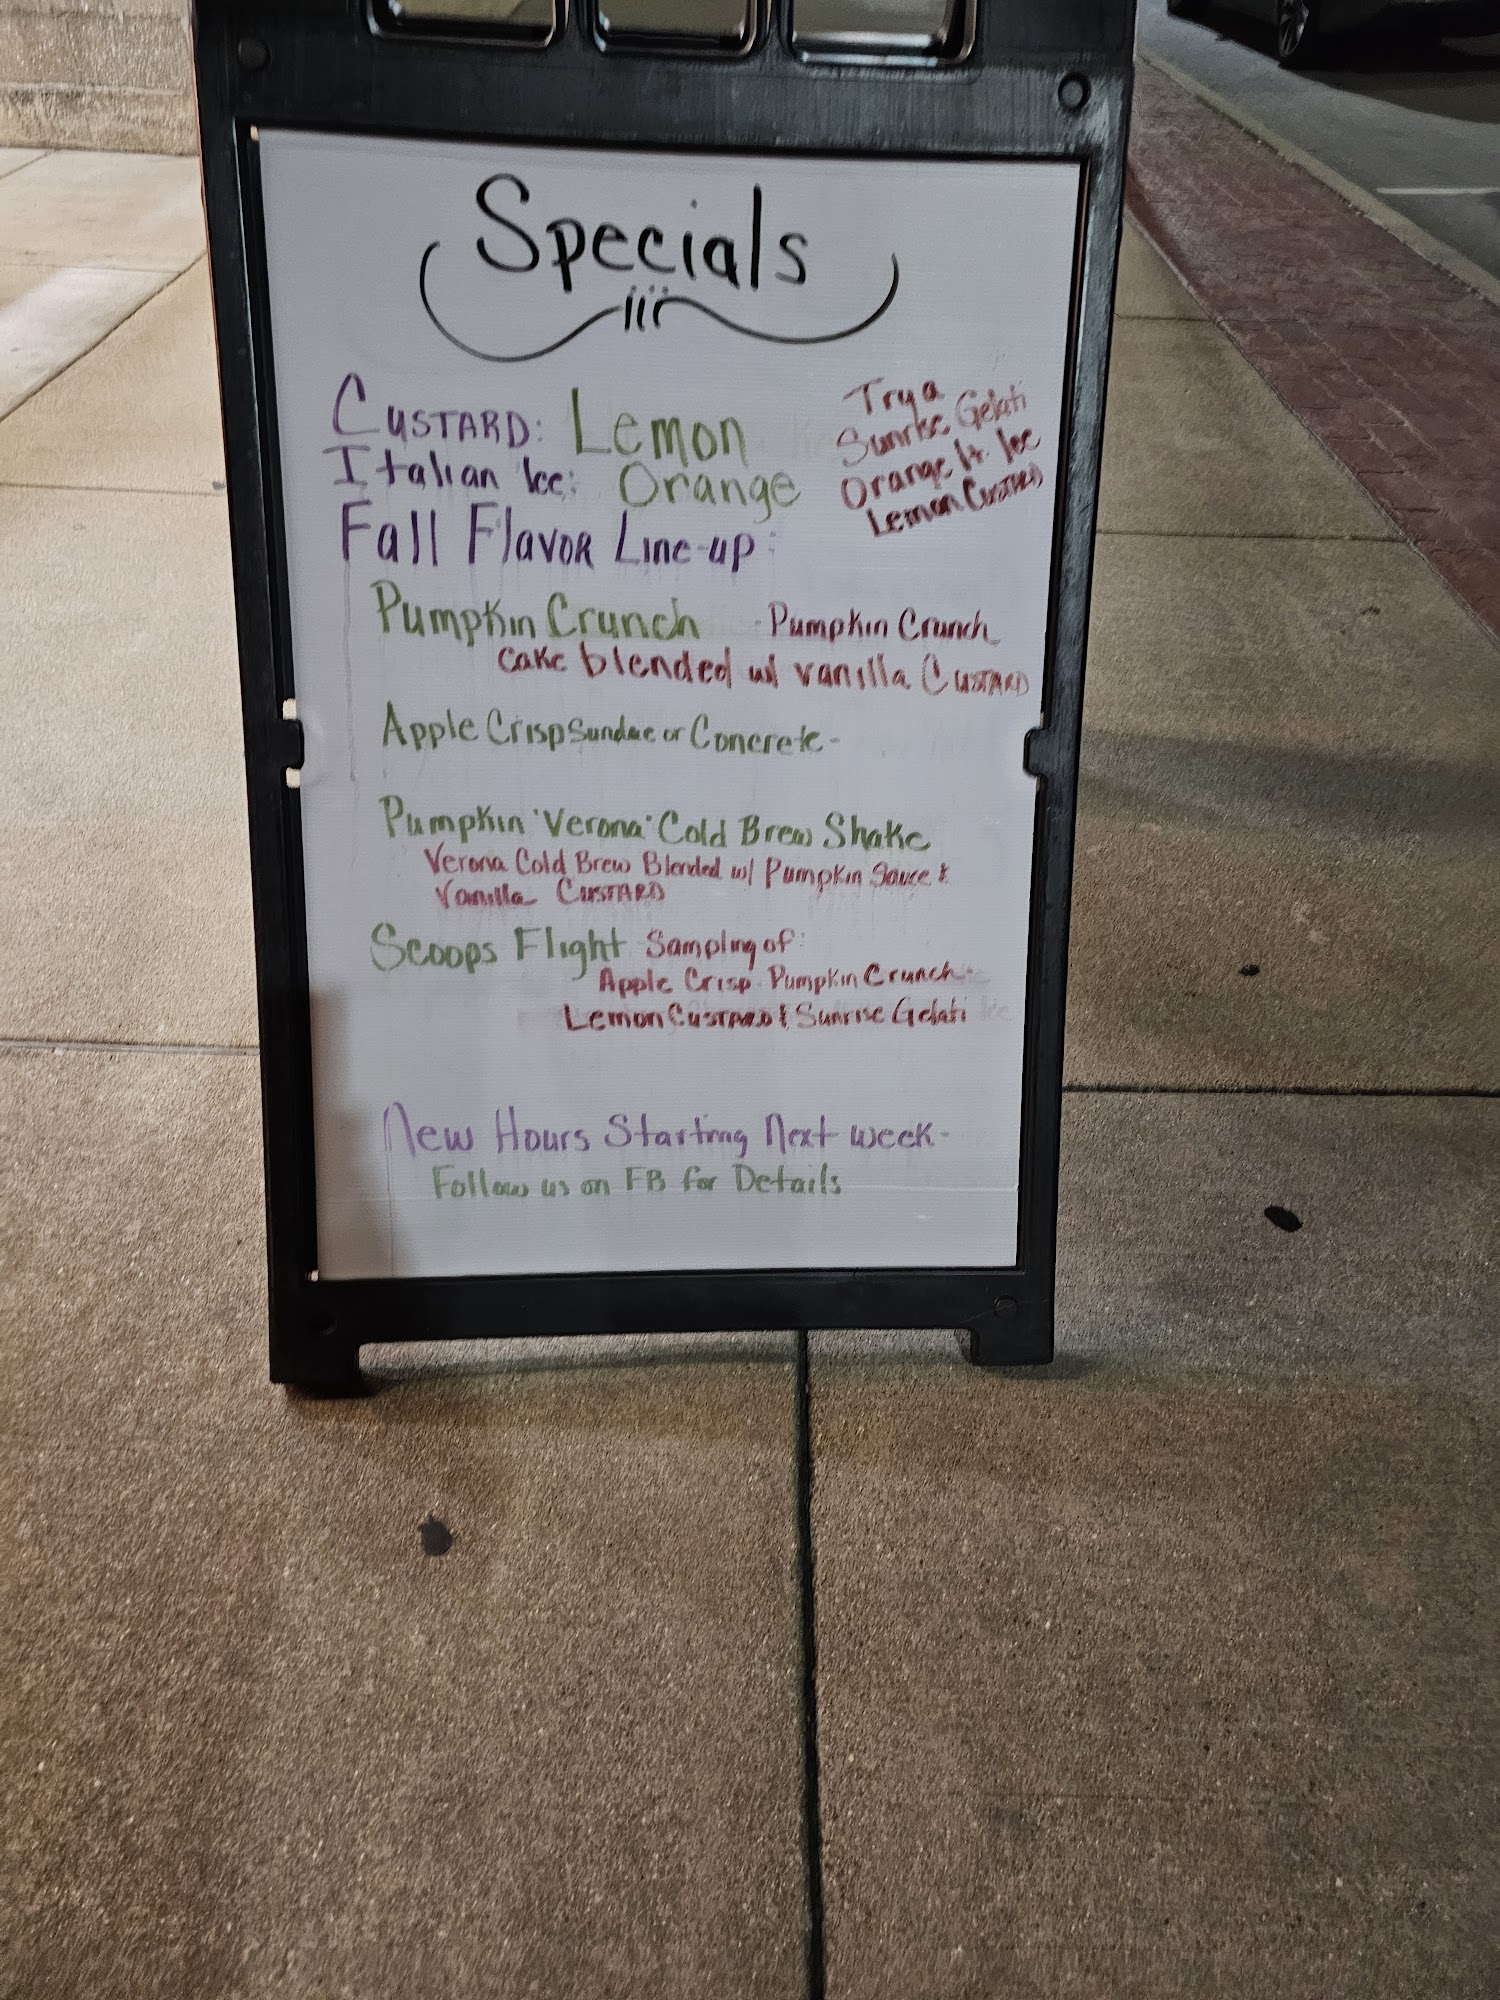 Specials
Custard: Lemon
Italian Ice: Orange
Try a
Sunrise Gelati
Orange It. Ice
Lemon Custard
Fall Flavor Line-up:
Pumpkin Crunch - Pumpkin Crunch
cake blended w/ vanilla Custard
Apple Crisp Sundae or Concrete -
Pumpkin "Verona" Cold Brew Shake
Verona Cold Brew Blended w/ Pumpkin Sauce &
Vanilla Custard
Scoops Flight Sampling of:
Apple Crisp - Pumpkin Crunch -
Lemon Custard & Sunrise Gelati
New Hours Starting Next week -
Follow us on FB for Details